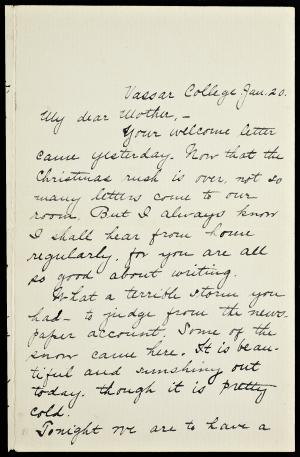 Vassar College, Jan. 20.
My dear Mother,-
Your welcome letter
came yesterday. Now that the
Christmas rush is over, not so
many letters come to our
room. But I always know
I shall hear from home
regularly, for you are all
so good about writing.
What a terrible storm you
had- to judge from the news-
paper account. Some of the
snow came here. It is beau-
tiful and sunshiny out
today, though it is pretty
cold.
Tonight we are to have a